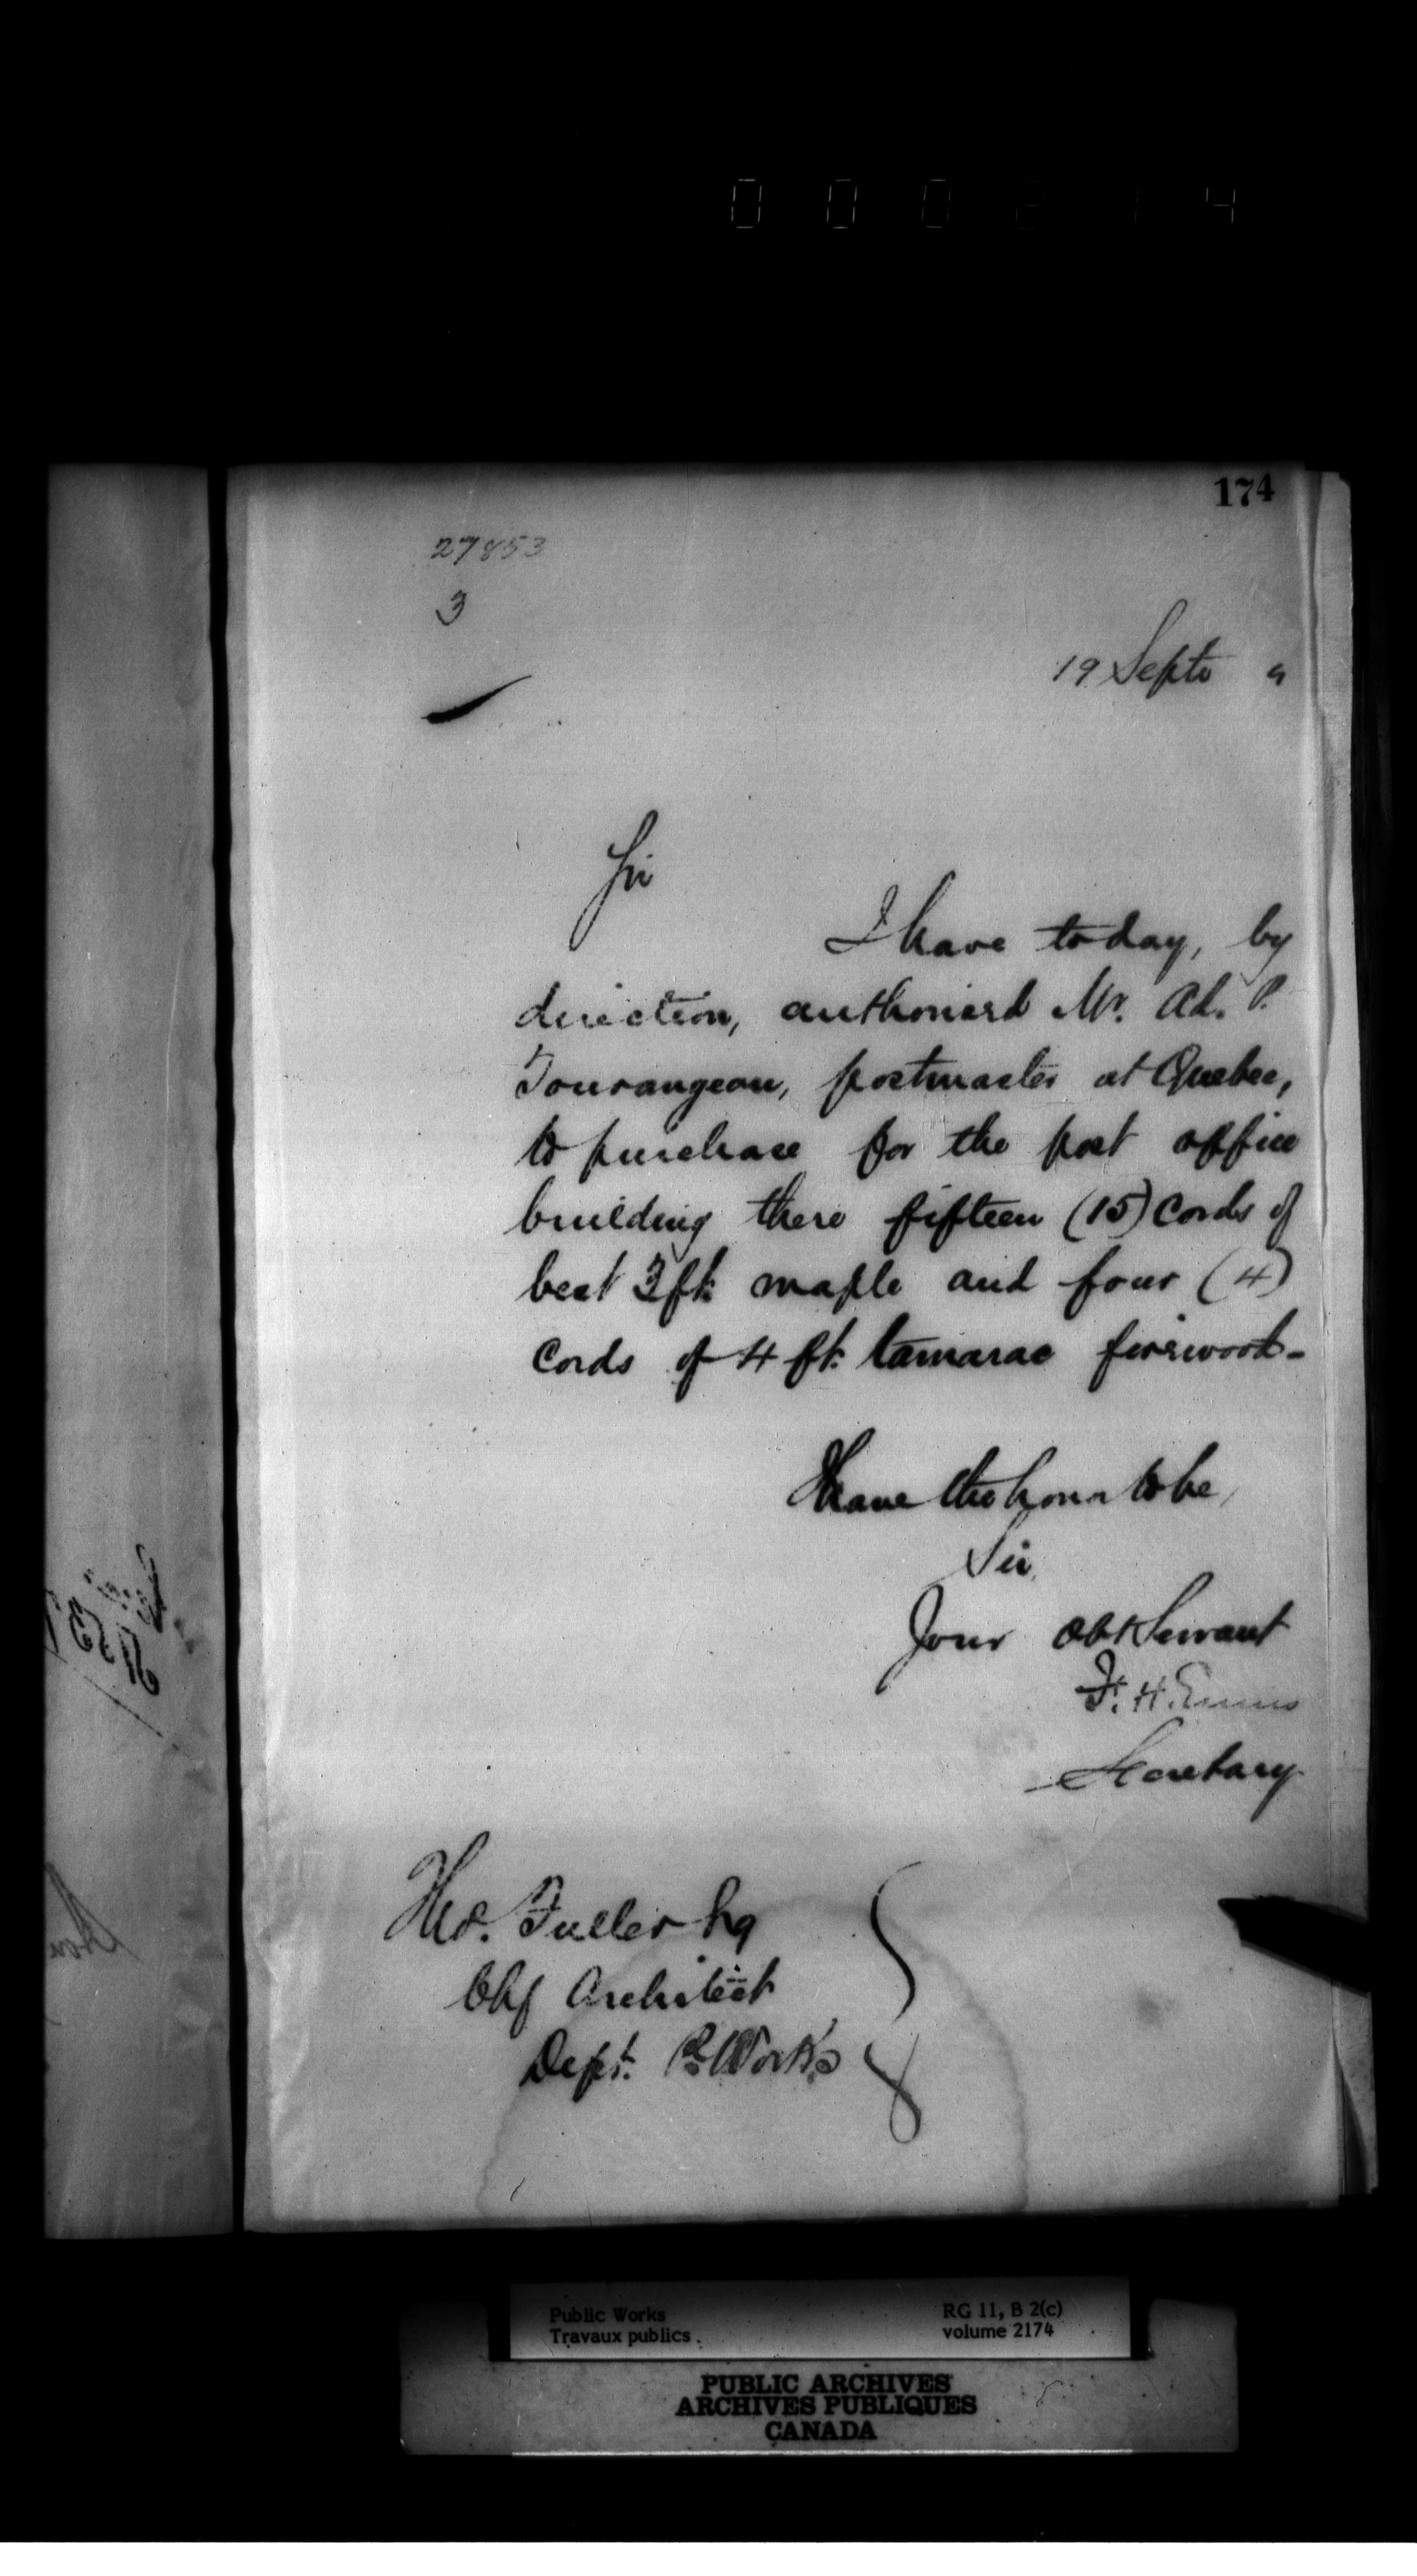 0 0 0 2 1 4
174
27853
3
19 Septr 9
Sir
I have today, by
direction, authorised Mr. Ad. P.
Tourangeau, postmaster at Quebec,
to purchase for the post office
building there fifteen (15) cords of
best 3 ft. maple and four (4)
cords of 4 ft. tamarac firewood-
I have the honor to be,
Sir,
Your Obt Servant
F. H. Ennis
Secretary
Thos. Fuller Esq
Chf Architect
Dept. P. Works
Public Works
Travaux publics
RG 11, B 2(c)
volume 2174
PUBLIC ARCHIVES
ARCHIVES PUBLIQUES
CANADA